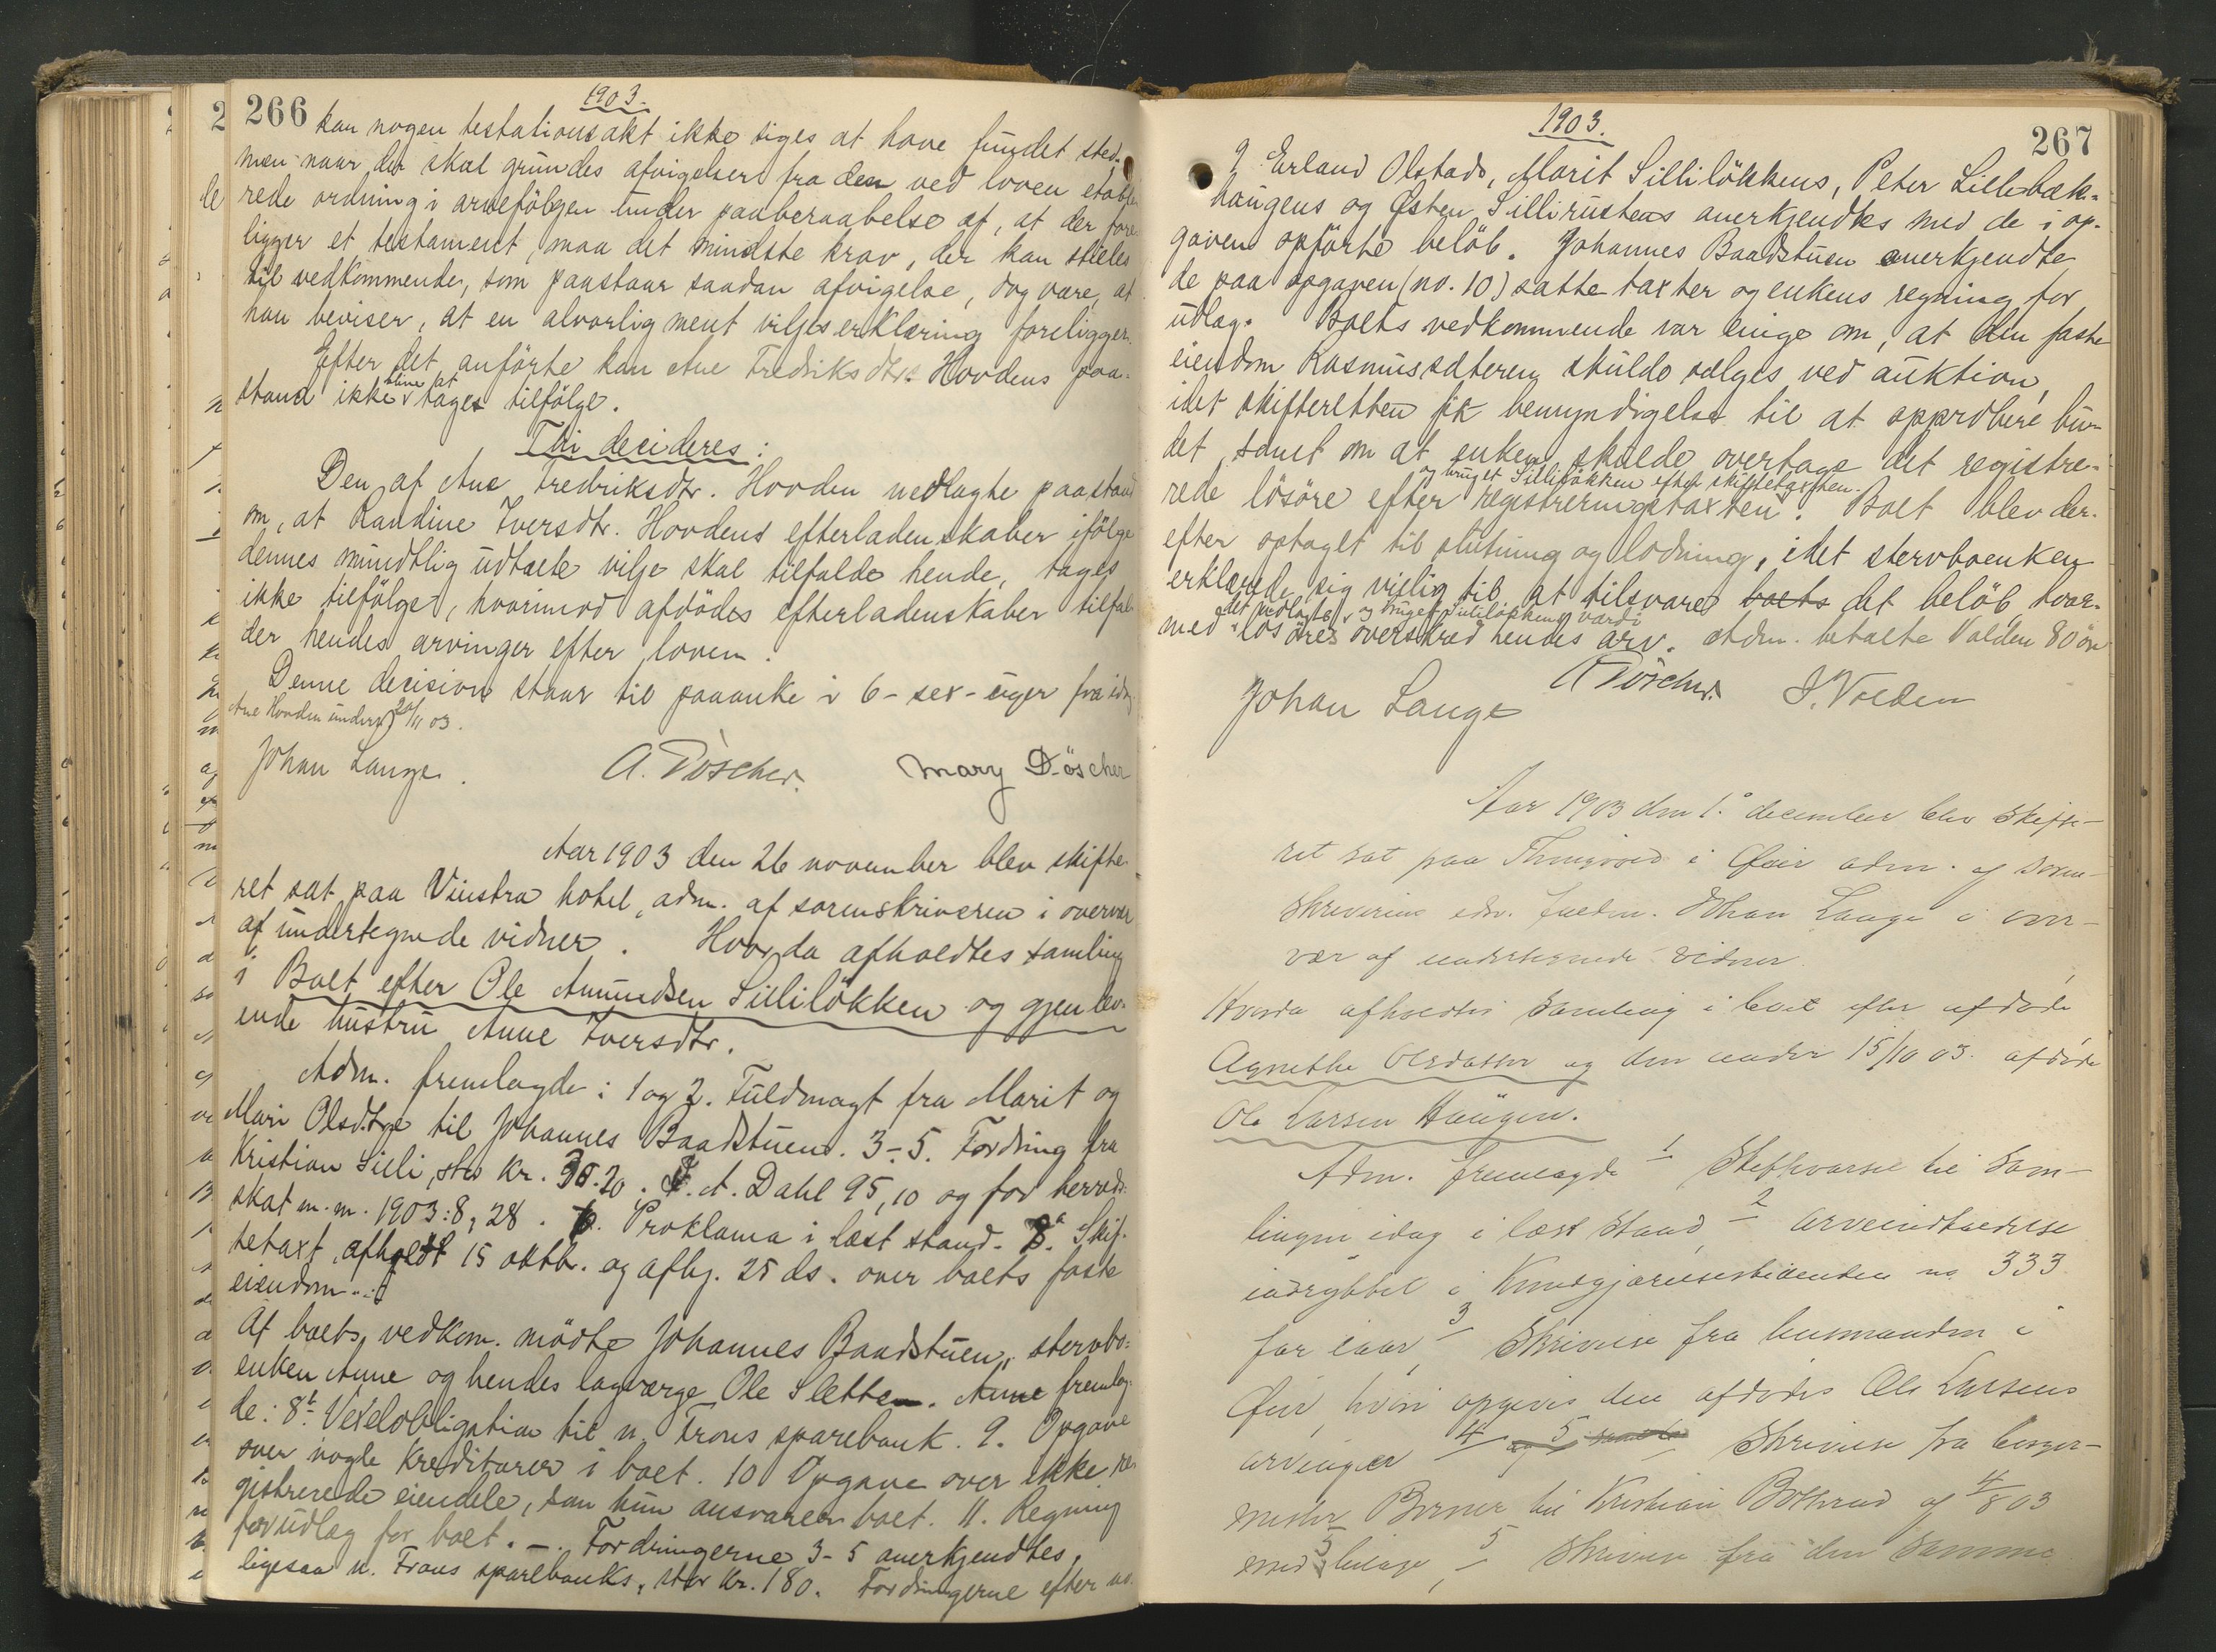 266
1903.
kan nogen testationsakt ikke siges at have fundet sted,
men naar der skal grundes afvigelser fra den ved loven etable
rede ordning i arvefölgen under paaberaabelse af, at der fore
ligger et testament, maa det mindste krav, der kan stilles
til vedkommende, som paastaar saadan afvigelse, dog være, at
han beviser, at en alvorlig ment viljeserklæring foreligger.
Efter det anförte kan Ane Fredriksdtr. Hovdens paa-
stand ikke blive at tages tilfölge.
Thi decideres:
Den af Ane Fredriksdtr. Hovden nedlagte paastand
om, at Randine Iversdtr. Hovdens efterladenskaber ifölge
dennes mundtlig udtalte vilje skal tilfalde hende, tages
ikke tilfölge, hvorimod afdödes efterladenskaber tilfal-
der hendes arvinger efter loven.
Denne decision staar til paaanke i 6 - sex - uger fra idag
Ane Hovden underr. 20/11 03.
Johan Lange. A. Döscher. Mary Döscher
Aar 1903 den 26 november blev skifte-
ret sat paa Vinstra hotel, adm. af sorenskriveren i overvær
af undertegnede vidner. Hvorda afholdtes samling
i Boet efter Ole Amundsen Sillilökken og gjenlev-
ende hustru Anne Iversdtr.
Adm. fremlagde: 1 og 2. Fuldmagt fra Marit og
Mari Olsdtre til Johannes Baadstuen. 3-5. Fordring fra
Kristian Silli, stor kr. 30.20. I. A. Dahl 95,10 og for herreds
skat m. m. 1903: 8,28. 6. Proklama i læst stand. 8a. Skif-
tetaxt, afholdt 15 oktbr. og afhj. 25 ds. over boets faste
eiendom.
Af boets vedkom. mödte Johannes Baadstuen, stervbo-
enken Anne og hendes lagværge Ole Sletten. Anne fremlag-
de: 8b. Vexelobligation til n. Frons sparebank. 9. Opgave
over nogle kreditorer i boet. 10 Opgave over ikke re-
gistrerede eiendele, som hun ansvarer boet. 11. Regning
for udlæg for boet. —. Fordringerne 3-5 anerkjendtes,
ligesaa n. Frons sparebanks, stor kr. 180. Fordringerne efter no.
1903.
267
9 Erland Olstads, Marit Sillilökkens, Peter Lillebæk-
haugens og Østen Sillirustens anerkjendtes med de i op-
gaven opförte beløb. Johannes Baadstuen anerkjendte
de paa opgaven (no. 10) satte taxter og enkens regning for
udlæg. Boets vedkommende var enige om, at den faste
eiendom Rasmussæteren skulde sælges ved auktion,
idet skifteretten fik bemyndigelse til at approbere bu-
det, samt om at enken skulde overtage det registre-
og bruget Sillilökken efter skiftetaxten.
rede lösöre efter registreringstaxten. Boet blev der-
efter optaget til slutning og lodning, idet stervboenken
erklærede sig villig til at tilsvare boets det beløb hvor-
det nedlagte og bruget Sillilökkens værdi
med lösöres overskred hendes arv. Adm. betalte Volden 80 öre
Johan Lange A Döscher. I. Volden
Aar 1903 den 1. december blev skifte-
ret sat paa Thingvold i Øier adm. af soren-
skriverens edsv. fuldm. Johan Lange i over-
vær af undertegnede vidner.
Hvorda afholdtes samling i boet efter afdöde
Agnethe Olsdatter og den under 15/10 03 afdöde
Ole Larsen Haugen.
Adm. fremlagde 1 Skiftevarsel til sam-
lingen idag i læst stand, 2 arveindkaldelse
indrykket i Kundgjørelsestidenden no 333
for iaar, 3 Skrivelse fra lensmanden i
Øier, hvori opgives den afdödes Ole Larsens
arvinger 4 og 5 Skrivelse fra borger-
mester Borner til Kristian Bothrud af 4/8 03
med 3 bilage, 5 Skrivelse fra den samme